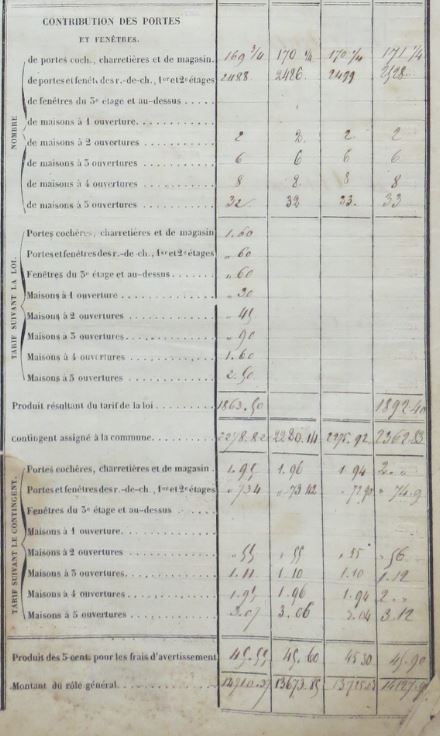 CONTRIBUTION DES PORTES
ET FENÊTRES.
NOMBRE
de portes coch., charretières et de magasin. 169 3/4 170 1/4 170 1/4 171 1/4
de portes et fenêt. des r.-de-ch., 1er et 2e étages 2488 2426 2499 2528
de fenêtres du 3e étage et au-dessus
de maisons à 1 ouverture
de maisons à 2 ouvertures 2 2 2 2
de maisons à 3 ouvertures 6 6 6 6
de maisons à 4 ouvertures 8 8 8 8
de maisons à 5 ouvertures 32 32 33. 33
TARIF SUIVANT LA LOI.
Portes cochères, charretières et de magasin 1.60
Portes et fenêtres des r.-de-ch., 1er et 2e étages „ 60
Fenêtres du 3e étage et au-dessus „ 60
Maisons à 1 ouverture „ 30
Maisons à 2 ouvertures „ 45
Maisons à 3 ouvertures „ 90
Maisons à 4 ouvertures 1.60
Maisons à 5 ouvertures 2.50
Produit résultant du tarif de la loi 1863.50 1892.40
Contingent assigné à la commune 2278.82 2280.14 2275.92 2362.83
TARIF SUIVANT LE CONTINGENT.
Portes cochères, charretières et de magasin 1.95 1.96 1.94 2 „ „
Portes et fenêtres des r.-de-ch., 1er et 2e étages „ 734 „ 73.42 „ 74.9
Fenêtres du 3e étage et au-dessus
Maisons à 1 ouverture
Maisons à 2 ouvertures „ 55 „ 55 „ 55 „ 56
Maisons à 3 ouvertures 1.11 1.10 1.10 1.12
Maisons à 4 ouvertures 1.95 1.96 1.94 2 „
Maisons à 5 ouvertures 3.07 3.06 3.04 3.12
Produit des 5 cent. pour les frais d'avertissement 45.55 45.60 45.30 45.90
Montant du rôle général 13673.85